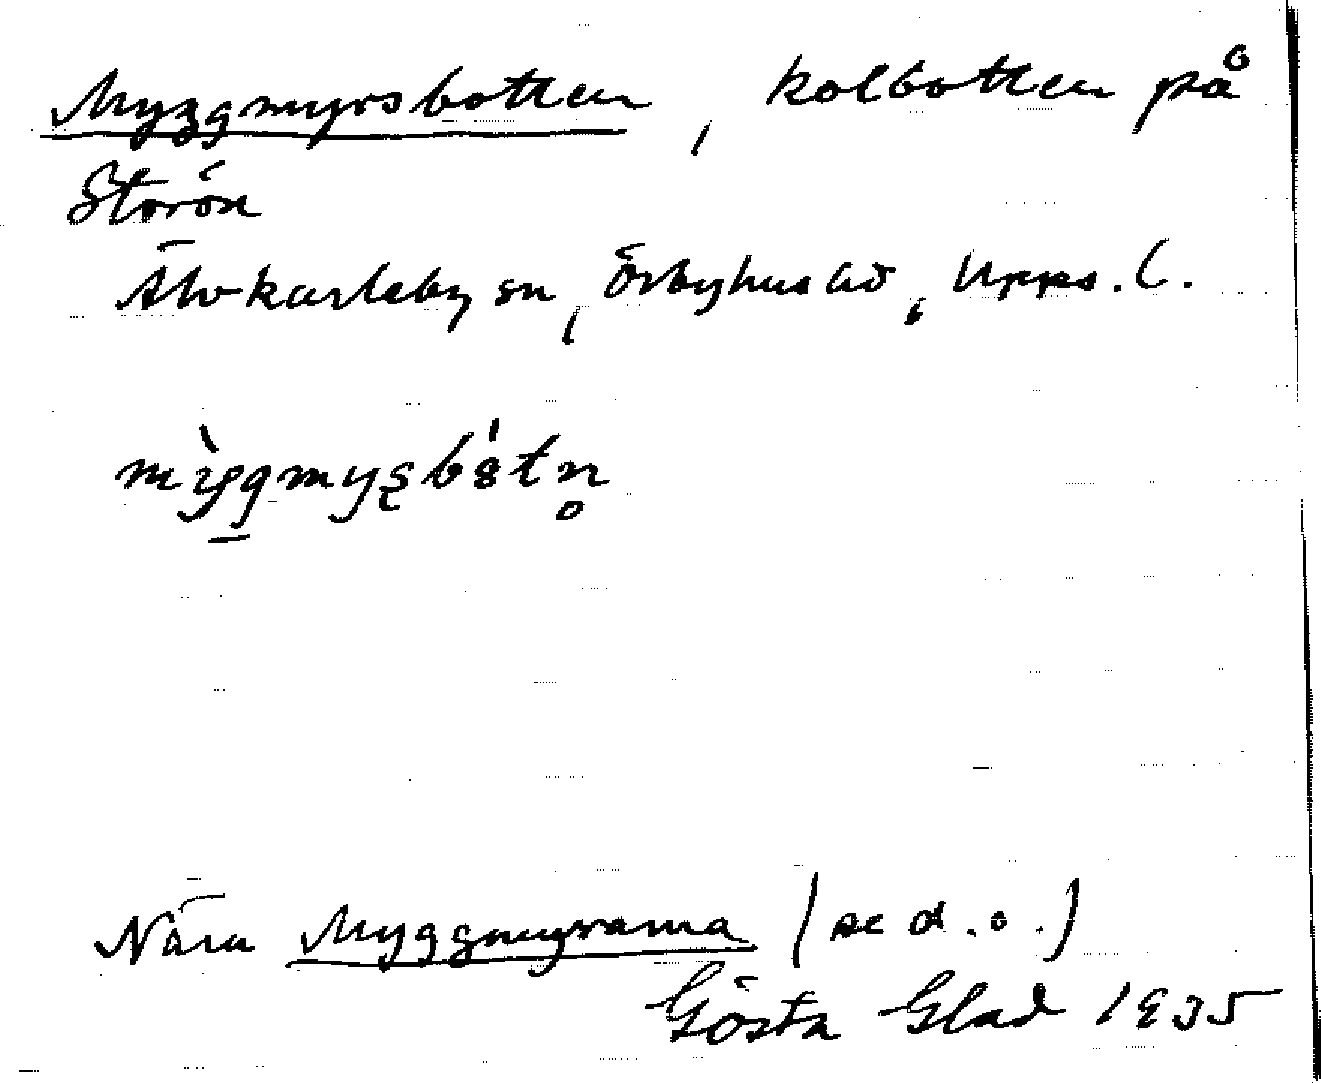 Myggmyrsbotten, kolbotten på
Storön
Älvkarleby sn, Örbyhus hd, Upps. l.
mỳgmyʂbótn̥
Nära Myggmyrarna (se d. o.)
Gösta Glad 1935